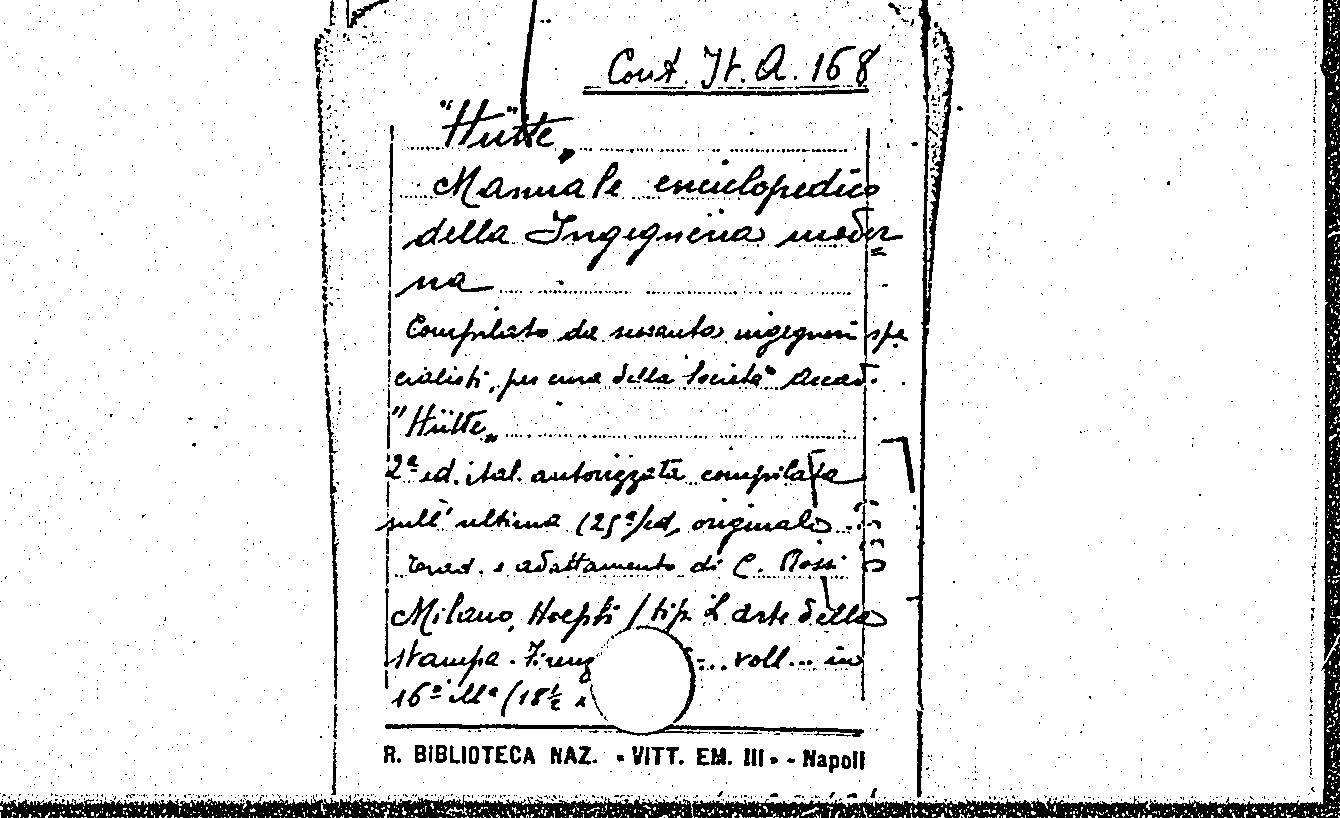 Cont. It. A. 168
"Hütte„
Manuale enciclopedico
della Ingegneria moder=
na
Compilato da sessanta ingegneri spe
cialisti, per cura della Società Accad.
"Hütte„
2ª ed. ital. autorizzata compilata
sull'ultima (25ª) ed, originale
Trad. e adattamento di C. Rossi
Milano, Hoepli / tip. L'arte della
stampa. Firenz ... voll... in
16º illº (18½ x
R. BIBLIOTECA NAZ. • VITT. EM. III • - Napoli